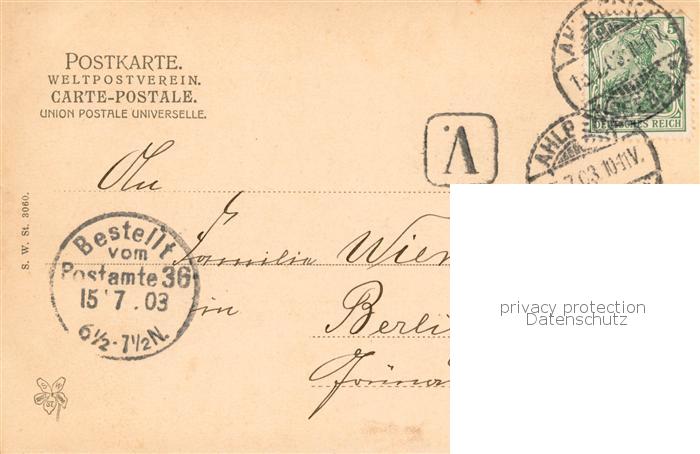 POSTKARTE.
WELTPOSTVEREIN.
CARTE-POSTALE.
UNION POSTALE UNIVERSELLE.
5
DEUTSCHES REICH
AHLB
7.03.10-11V.
V.
An
Familie Wien
in
Berli
S. W. St. 3060.
Bestellt
vom
Postamte 36
15 7.03
6½-7½N.
privacy protection
Datenschutz